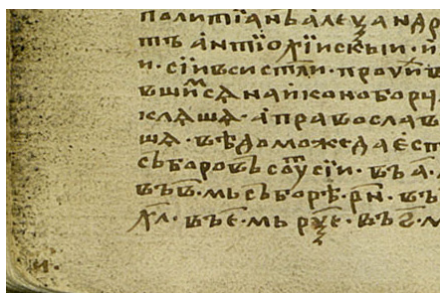 политїанъ алеѯандр
тъ антїохїискыи · и
и · сїи вси ст҃ли · проч҃и в
вшїися на иконоборц
клѧшѧ · а православ
шѧ · вѣдомо же да ест
съборовъ сѫт сїи · въ · а ·
въ в · мь съборѣ · рн · въ
хл · въ е · мь рѯе · въ ѕ · м
и ·